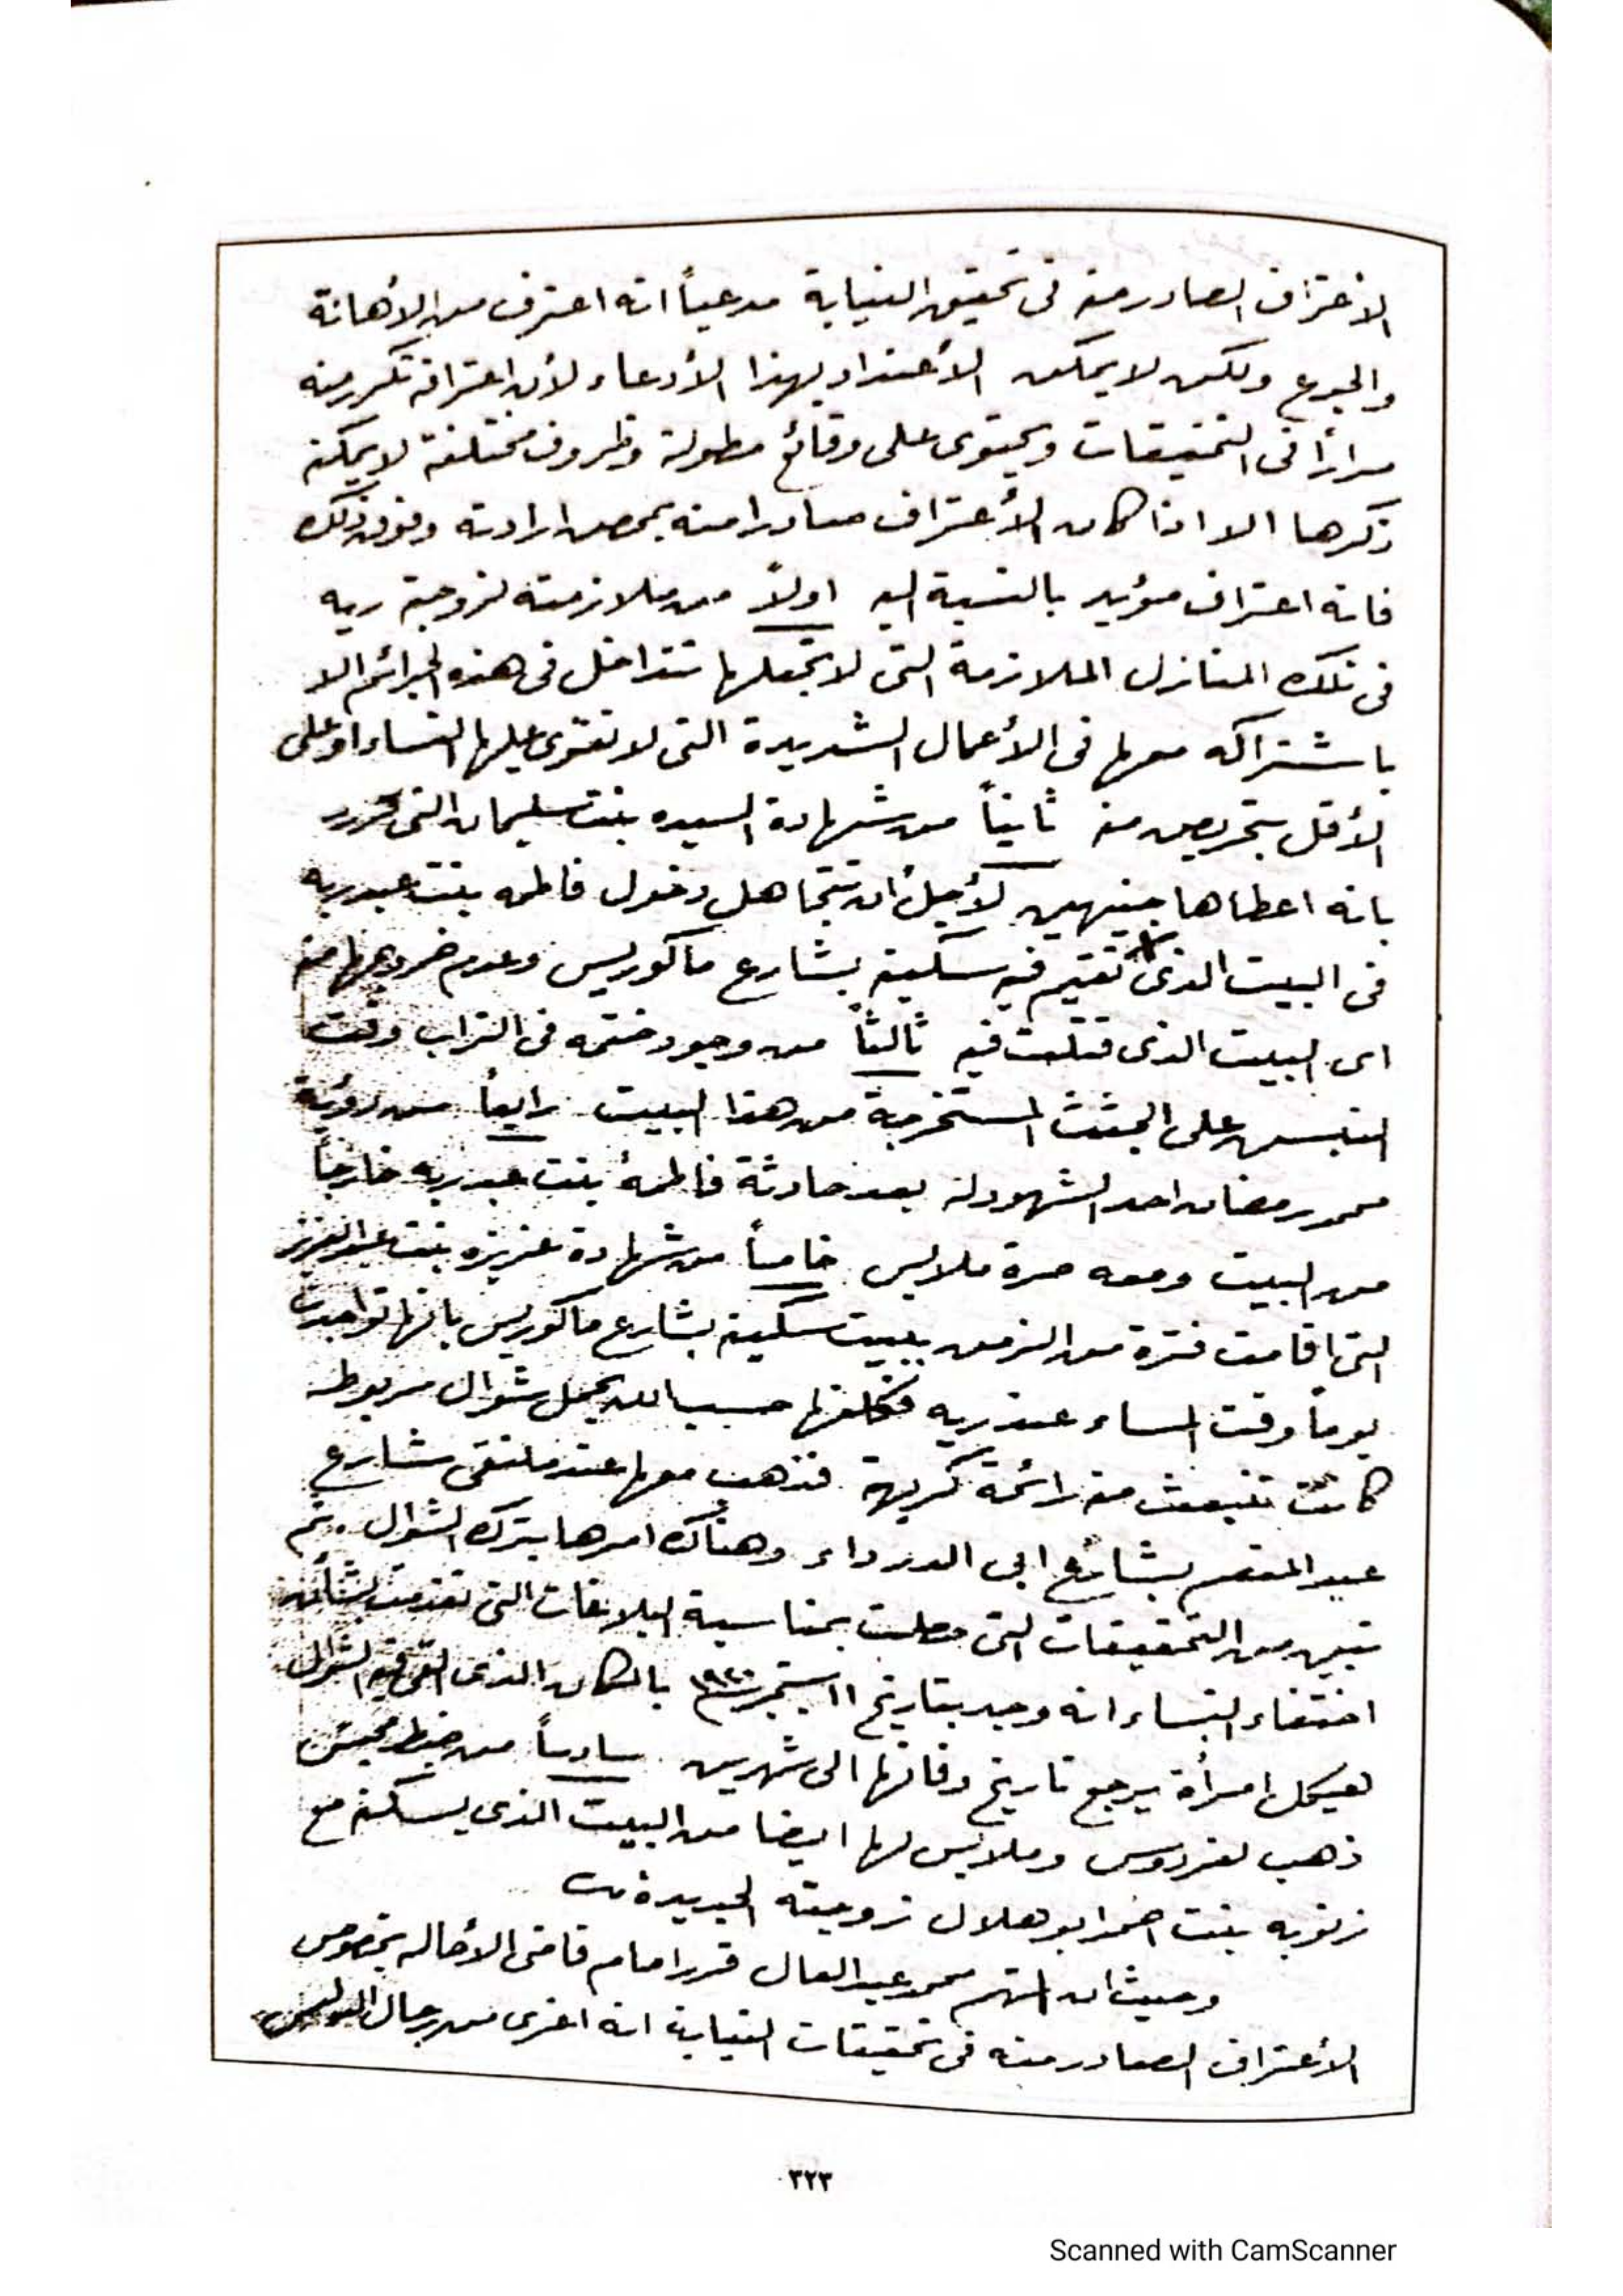 الاعتراف الصادر منه فى تحقيق النيابة مدعياً انه اعترف من الأهانة
والجوع ولكن لا يمكن الأعتداد بهذا الأدعاء لأن اعترافه تكرر منه
مراراً فى التحقيقات ويحتوى على وقائع مطولة وظروف مختلفة لا يمكنه
ذكرها الا اذا كان الأعتراف صادرا منه بمحض ارادته وفوق ذلك
فانه اعتراف مؤيد بالنسبة اليه اولاً من ملازمته لزوجته ريه
فى تلك المنازل الملازمة التى لا تجعلها تتداخل فى هذه الجرائم الا
باشتراكه معها فى الأعمال الشديدة التى لا تقوى عليها النساء او على
الأقل بتحريض منه ثانياً من شهادة السيده بنت سليمان التى تقرر
بانه اعطاها جنيهين لأجل أن تتجاهل دخول فاطمه بنت عبد ربه
فى البيت الذى تقيم فيه سكينه بشارع ماكوريس وعدم خروجها منه
اى البيت الذى قتلت فيه ثالثاً من وجود ختمه فى التراب وقت
النبس على الجثث المستخرجة من هذا البيت رابعاً من رؤية
محمد رمضان احد الشهود له بعد حادثة فاطمة بنت عبد ربه خارجاً
من البيت ومعه صرة ملابس خامساً من شهادة عزيزه بنت عبد العزيز
التى اقامت فترة من الزمن ببيت سكينه بشارع ماكوريس بانها تواجدت
يوماً وقت المساء عند ريه فكلفها حسب الله بحمل شوال مربوط
كانت تنبعث منه رائحة كريهة فذهب معها عند ملتقى شارع
عبد المنعم بشارع ابى الدرداء وهناك امرها بترك الشوال وتم
تبين من التحقيقات التى حصلت بمناسبة البلاغات التى تقدمت بشأن
اختفاء النساء انه وجد بتاريخ ١١ سبتمبر ١٩٢٠ بالمكان الذى القى فيه الشوال
هيكل امرأة يرجع تاريخ وفاتها الى شهرين سادساً من ضبط محبس
ذهب لفردوس وملابس لها ايضا من البيت الذى يسكنه مع
زنوبه بنت احمد ابو هلال زوجته الجديدة
وحيث ان المتهم محمد عبد العال قرر امام قاضى الأحاله بخصوص
الأعتراف الصادر منه فى تحقيقات النيابة انه اغرى من رجال البوليس
٣٢٣
Scanned with CamScanner